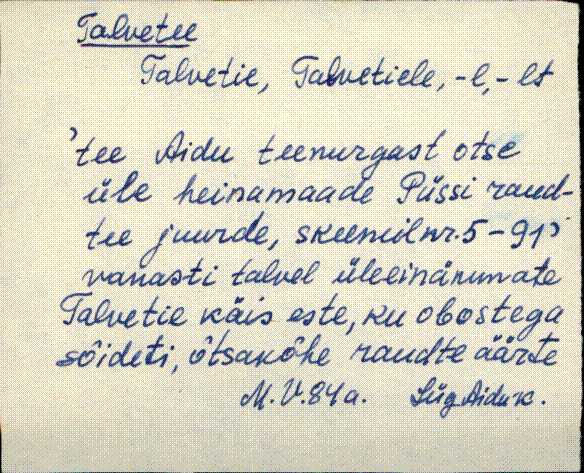 Talvetee
Talvetie, Talvetiele, -l, -lt
'tee Aidu teenurgast otse
üle heinamaade Püssi raud-
tee juurde, skeemil nr. 5-91'
vanasti talvel üleeinämmate
Talvetie käis este, ku obostega
sõideti, õtsakõhe raudte äärte
M.V. 84 a. Lüg Aidu k.